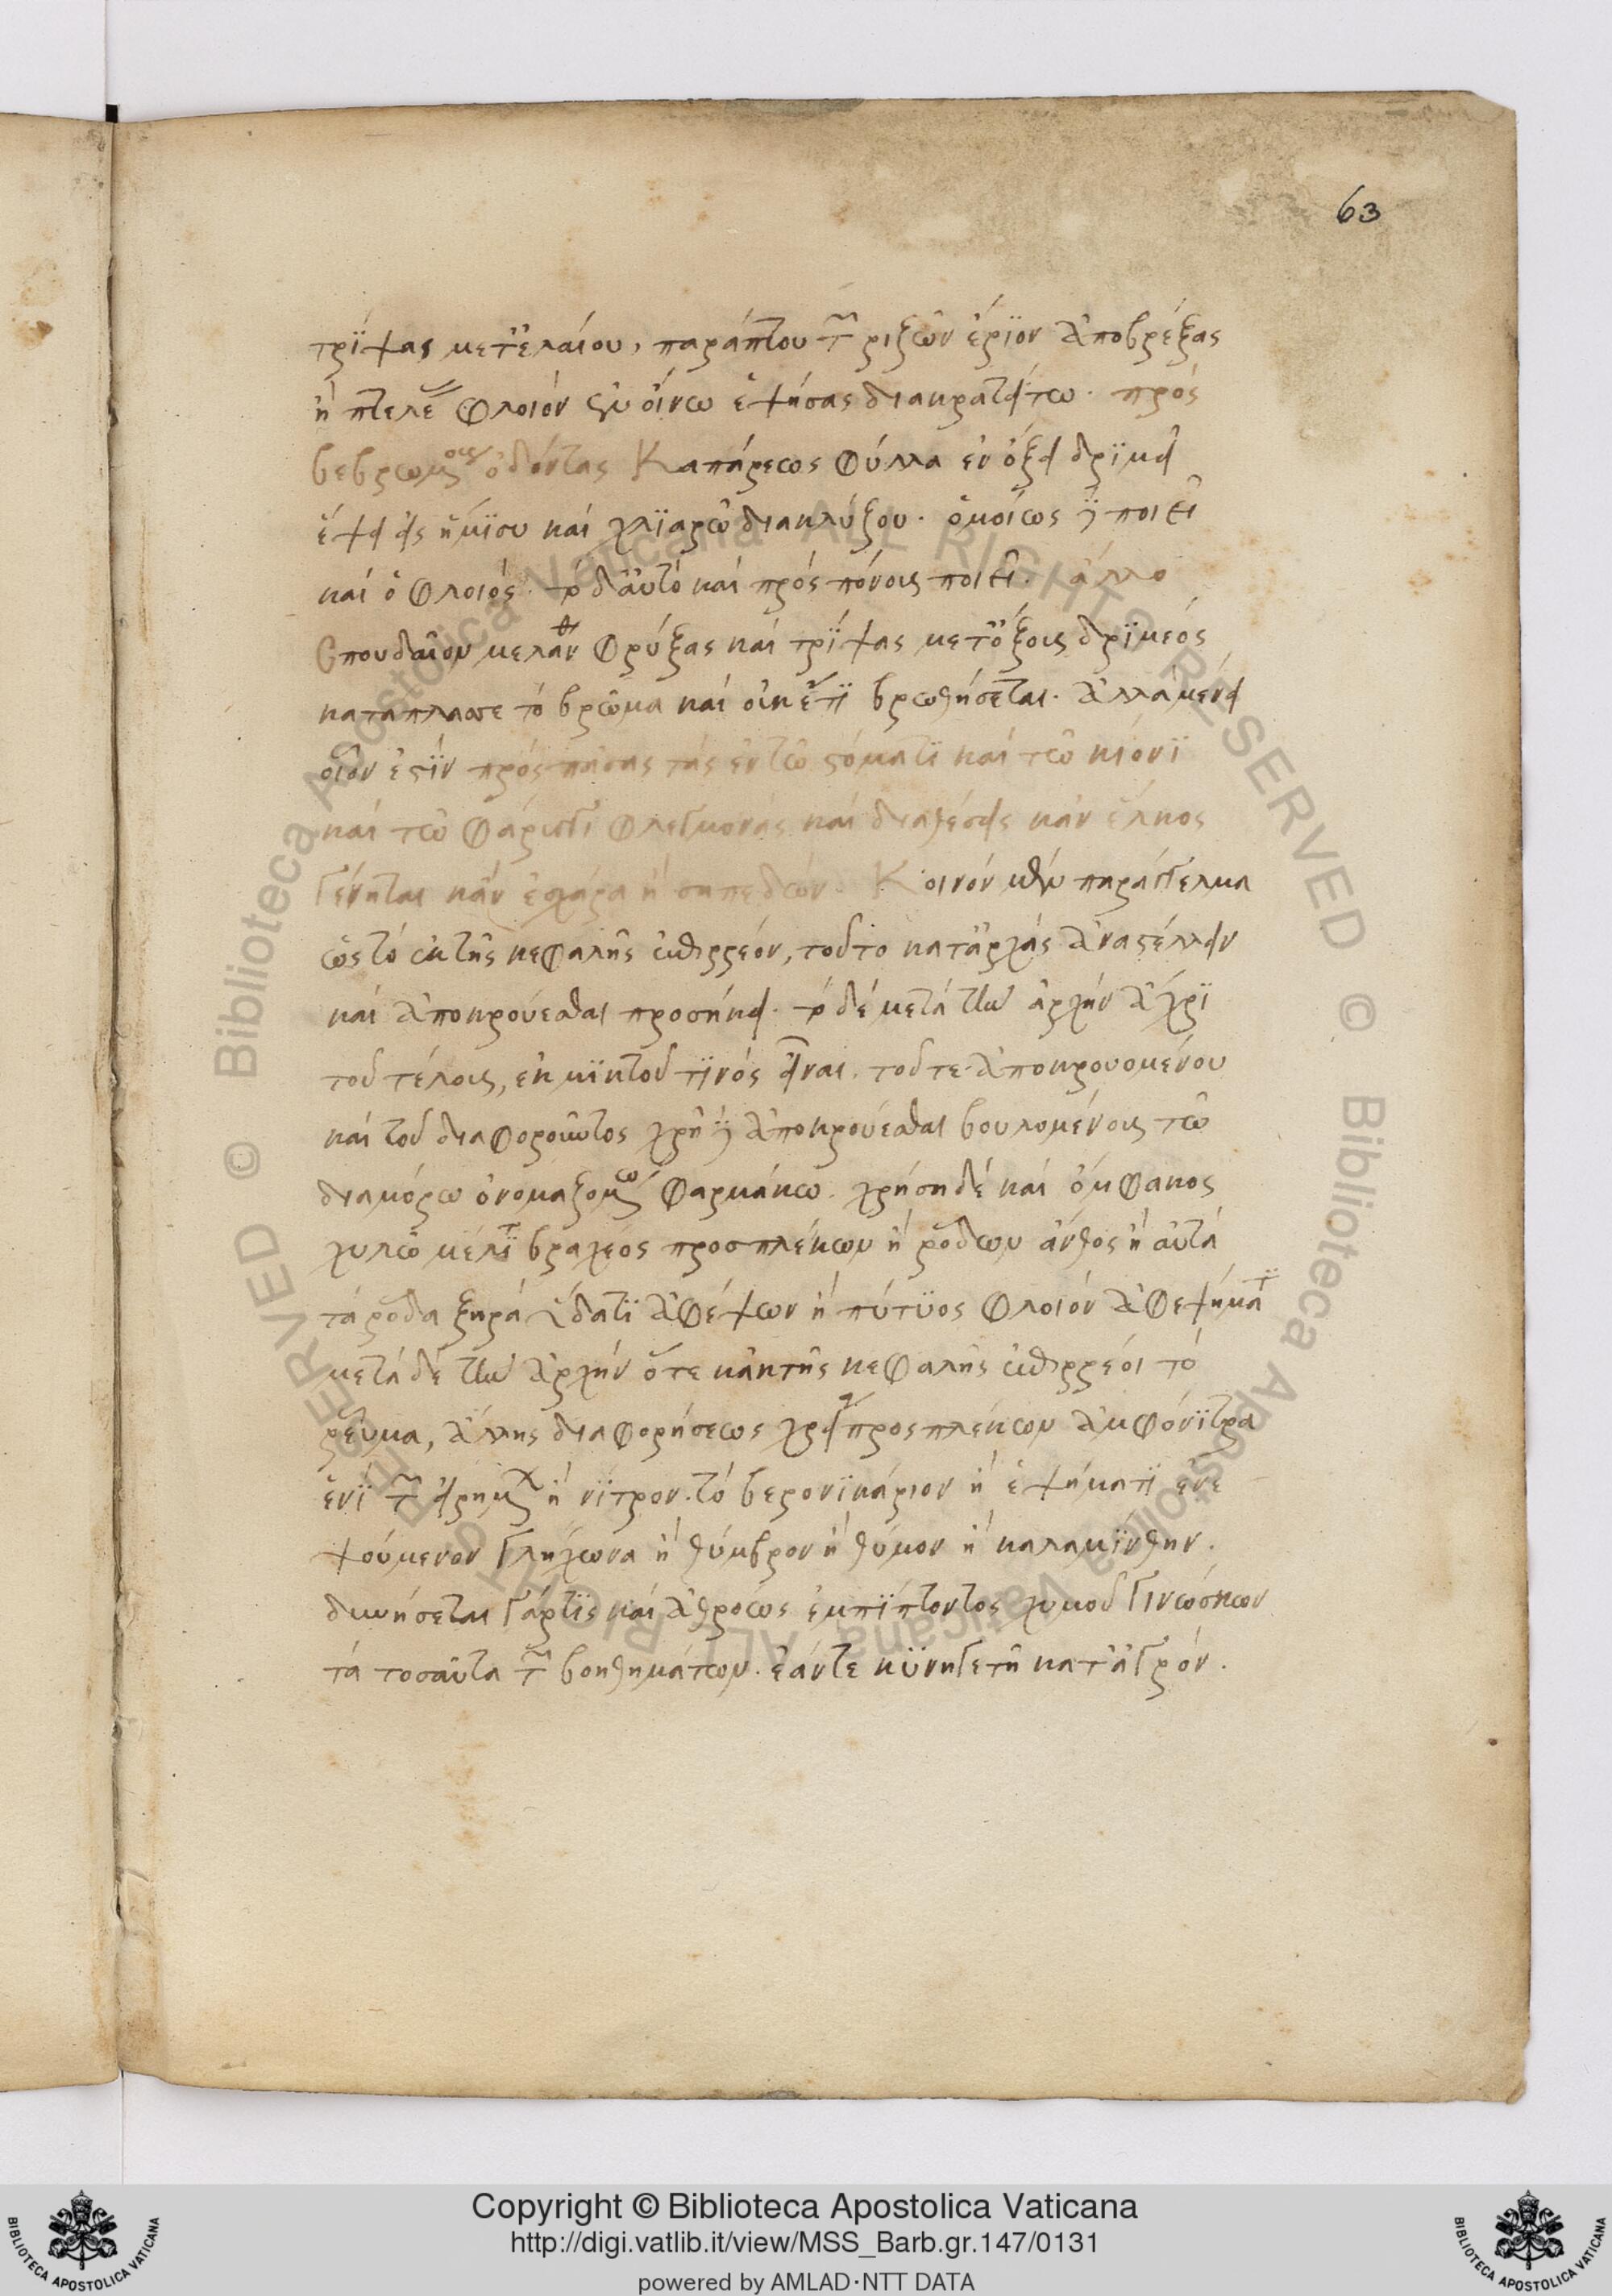 63
τρίψας μετ' ἐλαίου, παράπτου τῶν ριζῶν ἔριον ἀποβρέξας
ἢ πτελέας φλοιόν σὺν οἴνω ἑψήσας διακρατείτω. πρός
βεβρωμένους ὀδόντας Καπάρεως φύλλα ἐν ὄξει δριμεῖ
ἕψει εἰς ἥμισυ καί χλιαρῶ διακλύζου. ὁμοίως δὲ ποιεῖ
καί ὁ φλοιός. τὸ δ' αὐτό καί πρός πόνους ποιεῖ. ἄλλο
Σπουδαῖον μελάνθιον φρύξας καί τρίψας μετ' ὄξους δριμέος
κατάπλασσε τό βρῶμα καί οὐκ ἔτι βρωθήσεται. ἀλλὰ μένει
οἷον ἐστίν πρός πάσας τάς ἐν τῶ στόματι καί τῶ κιόνι
καί τῶ φάρυγγι φλεγμονάς καί διαθέσεις κἄν ἕλκος
γένηται κἄν ἐσχάρα ἢ σηπεδών. Κοινόν μὲν παράγγελμα
ὡς τό ἐκ τῆς κεφαλῆς ἐπιρρέον, τοῦτο κατ' ἀρχάς ἀναστέλλειν
καί ἀποκρούεσθαι προσήκει. τὸ δέ μετά τὴν ἀρχήν ἄχρι
τοῦ τέλους, ἐκ μικτοῦ τινός εἶναι. τοῦ τε ἀποκρουομένου
καί τοῦ διαφοροῦντος χρὴ δὲ ἀποκρούεσθαι βουλομένους τῶ
διαμόρω ὀνομαζομένω φαρμάκω. χρήση δέ καί ὄμφακος
χυλῶ μέλιτι βραχέος προσπλέκων ἢ ρόδων ἄνθος ἢ αὐτά
τά ρόδα ξηρά ὕδατι ἀφέψων ἢ πίτυος φλοιόν ἀφεψήματι
μετά δέ τὴν ἀρχήν ὅτε κἀκ τῆς κεφαλῆς ἐπιρρέοι τό
ρεῦμα, ἄλλης διαφορήσεως χρεία προσπλέκων ἀμφόνιτρα
ἑνί τῶν εἰρημένων ἢ νίτρον. τό βερονικάριον ἢ ἑψήματι ἐνε
ψούμενον γλήχωνα ἢ θύμβρον ἢ θύμον ἢ καλαμίνθην.
δυνήσεται γάρ τις καί ἀθρόως ἐμπίπτοντος χυμοῦ γινώσκων
τά τοσαῦτα τῶν βοηθημάτων. ἐάν τε κυνηγετῆ κατ' ἀγρόν.
Copyright © Biblioteca Apostolica Vaticana
http://digi.vatlib.it/view/MSS_Barb.gr.147/0131
powered by AMLAD·NTT DATA